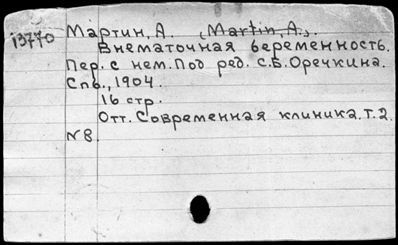 13770 Мартин, А. (Martin, A.).
Внематочная беременность.
Пер. с нем. Под ред. С.Б. Оречкина.
Спб., 1904.
16 стр.
Отт. Современная клиника. т. 2.
N8.